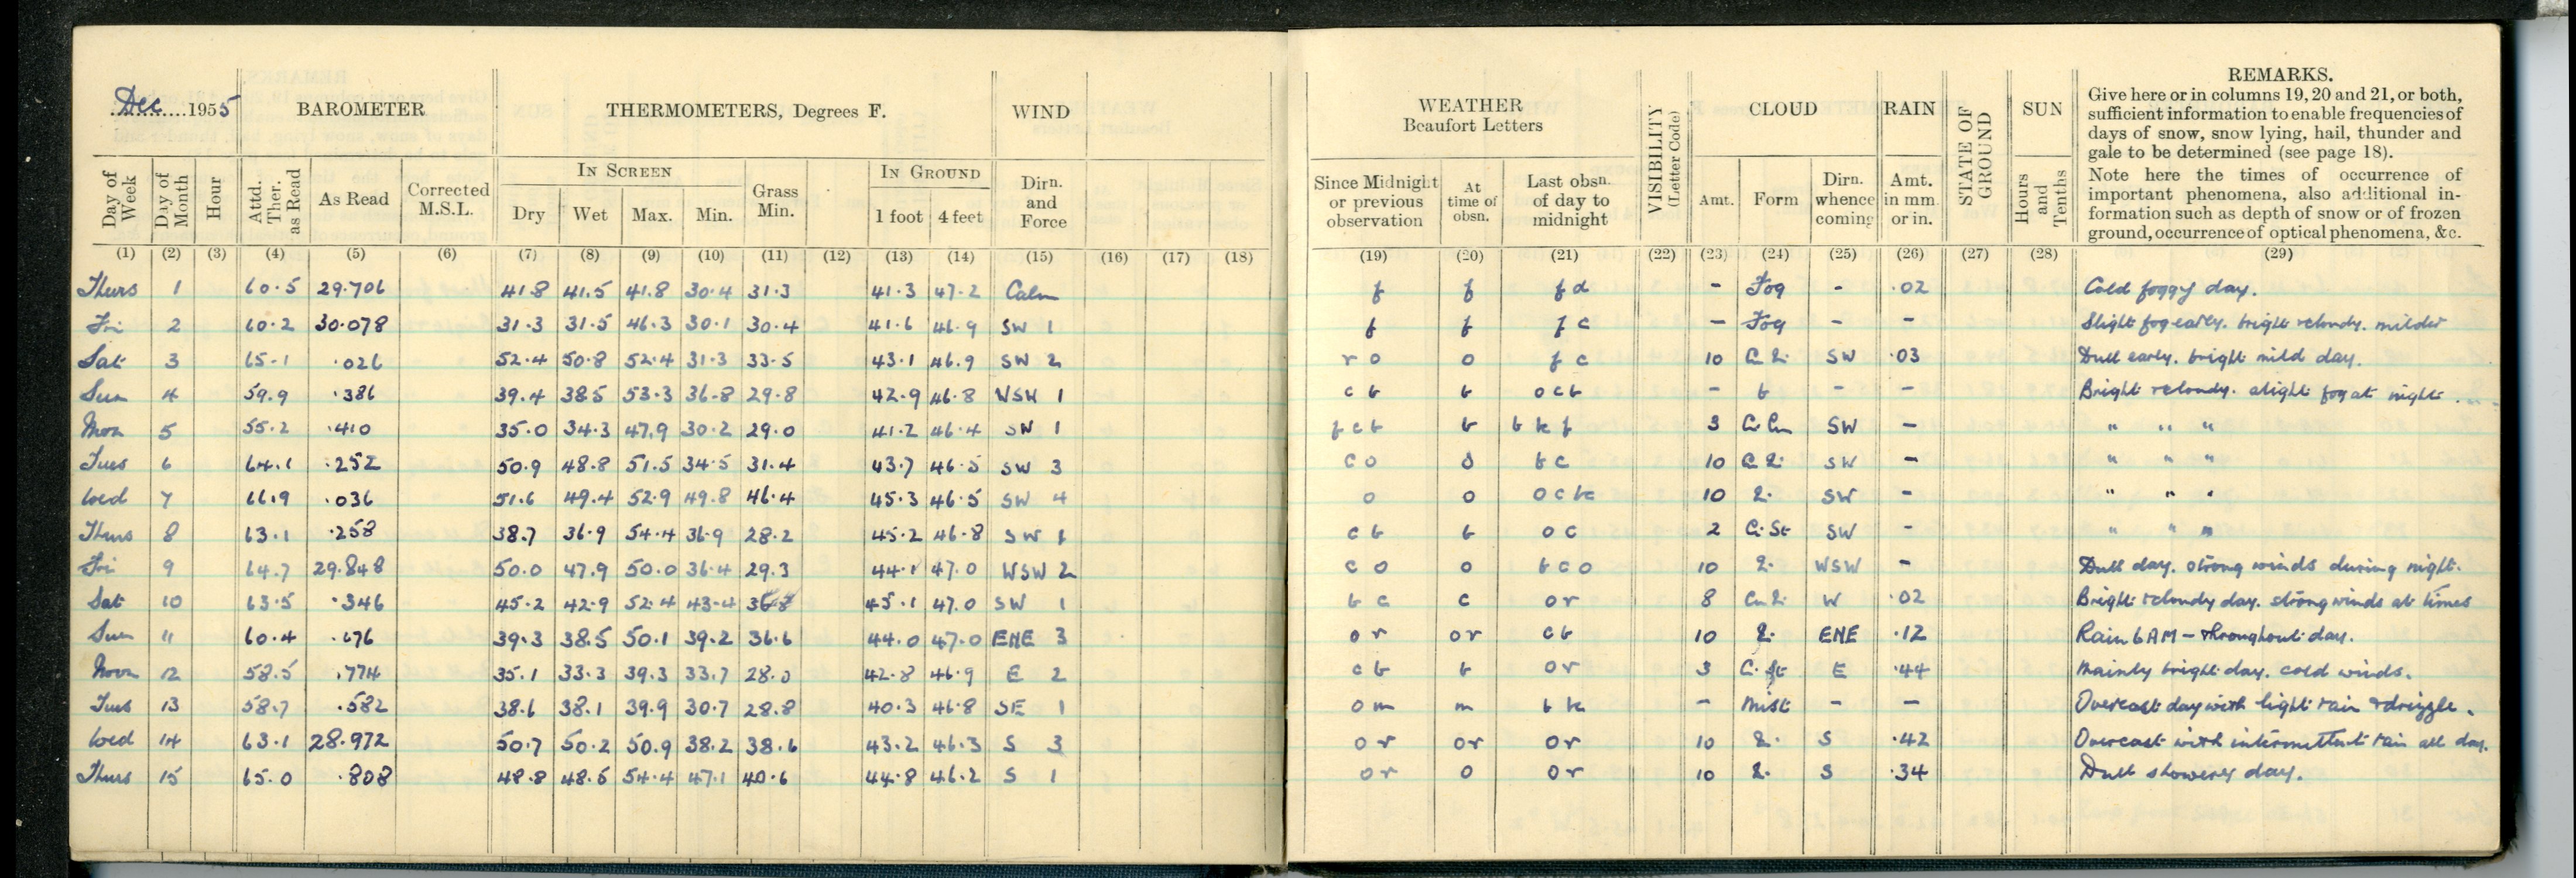 Dec 1955 BAROMETER THERMOMETERS, Degrees F. WIND
Day of Week Day of Month Hour Attd. Ther. as Read As Read Corrected M.S.L. IN SCREEN Dry Wet Max. Min. Grass Min. IN GROUND 1 foot 4 feet Dirn. and Force
(1) (2) (3) (4) (5) (6) (7) (8) (9) (10) (11) (12) (13) (14) (15) (16) (17) (18)
Thurs 1 60.5 29.706 41.8 41.5 41.8 30.4 31.3 41.3 47.2 Calm
Fri 2 60.2 30.078 31.3 31.5 46.3 30.1 30.4 41.6 46.9 SW 1
Sat 3 65.1 .026 52.4 50.8 52.4 31.3 33.5 43.1 46.9 SW 2
Sun 4 59.9 .386 39.4 38.5 53.3 36.8 29.8 42.9 46.8 WSW 1
Mon 5 55.2 .410 35.0 34.3 47.9 30.2 29.0 41.2 46.4 SW 1
Tues 6 64.1 .252 50.9 48.8 51.5 34.5 31.4 43.7 46.5 SW 3
Wed 7 66.9 .036 51.6 49.4 52.9 49.8 46.4 45.3 46.5 SW 4
Thurs 8 63.1 .258 38.7 36.9 54.4 36.9 28.2 45.2 46.8 SW 1
Fri 9 64.7 29.848 50.0 47.9 50.0 36.4 29.3 44.1 47.0 WSW 2
Sat 10 63.5 .346 45.2 42.9 52.4 43.4 45.1 47.0 SW 1
Sun 11 60.4 .676 39.3 38.5 50.1 39.2 36.6 44.0 47.0 ENE 3
Mon 12 58.5 .774 35.1 33.3 39.3 33.7 28.0 42.8 46.9 E 2
Tues 13 58.7 .582 38.6 38.1 39.9 30.7 28.8 40.3 46.8 SE 1
Wed 14 63.1 28.972 50.7 50.2 50.9 38.2 38.6 43.2 46.3 S 3
Thurs 15 65.0 .808 48.8 48.6 54.4 47.1 40.6 44.8 46.2 S 1
WEATHER Beaufort Letters VISIBILITY (Letter Code) CLOUD RAIN STATE OF GROUND SUN REMARKS.
Since Midnight or previous observation At time of obsn. Last obsn. of day to midnight Amt. Form Dirn. whence coming Amt. in mm or in. Hours and Tenths
Give here or in columns 19, 20 and 21, or both,
sufficient information to enable frequencies of
days of snow, snow lying, hail, thunder and
gale to be determined (see page 18).
Note here the times of occurrence of
important phenomena, also additional in-
formation such as depth of snow or of frozen
ground, occurrence of optical phenomena, &c.
(19) (20) (21) (22) (23) (24) (25) (26) (27) (28) (29)
f f fd - Fog - .02 Cold foggy day.
f f fc - Fog - - Slight fog early. bright & cloudy. milder
ro o fc 10 SW .03 Dull early. bright mild day.
cb b ocb - b - - Bright & cloudy. slight fog at night.
fcb b bkf 3 SW - " " "
co o bc 10 SW - " " "
o o 10 SW - " " "
cb b oc 2 Ci St SW - " " "
co o bco 10 WSW - Dull day. strong winds during night.
bc c or 8 W .02 Bright & cloudy day. strong winds at times
or or cb 10 ENE .12 Rain 6 AM - throughout day.
cb b or 3 E .44 Mainly bright day. cold winds.
om m bk - Mist - - Overcast day with light rain & drizzle.
or or or 10 S .42 Overcast with intermittent rain all day.
or o or 10 S .34 Dull showery day.